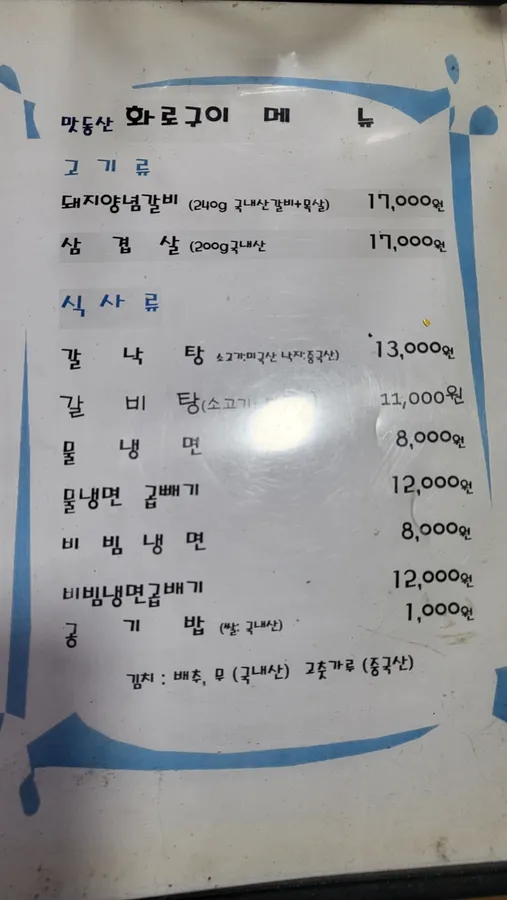 맛동산 화로구이 메뉴
고기류
돼지양념갈비 (240g 국내산갈비+목살) 17,000원
삼겹살 (200g국내산 17,000원
식사류
갈낙탕 소고기:미국산 낙지:중국산) 13,000원
갈비탕(소고기: 11,000원
물냉면 8,000원
물냉면 곱빼기 12,000원
비빔냉면 8,000원
비빔냉면곱배기 12,000원
공기밥 (쌀: 국내산) 1,000원
김치 : 배추, 무 (국내산) 고춧가루 (중국산)